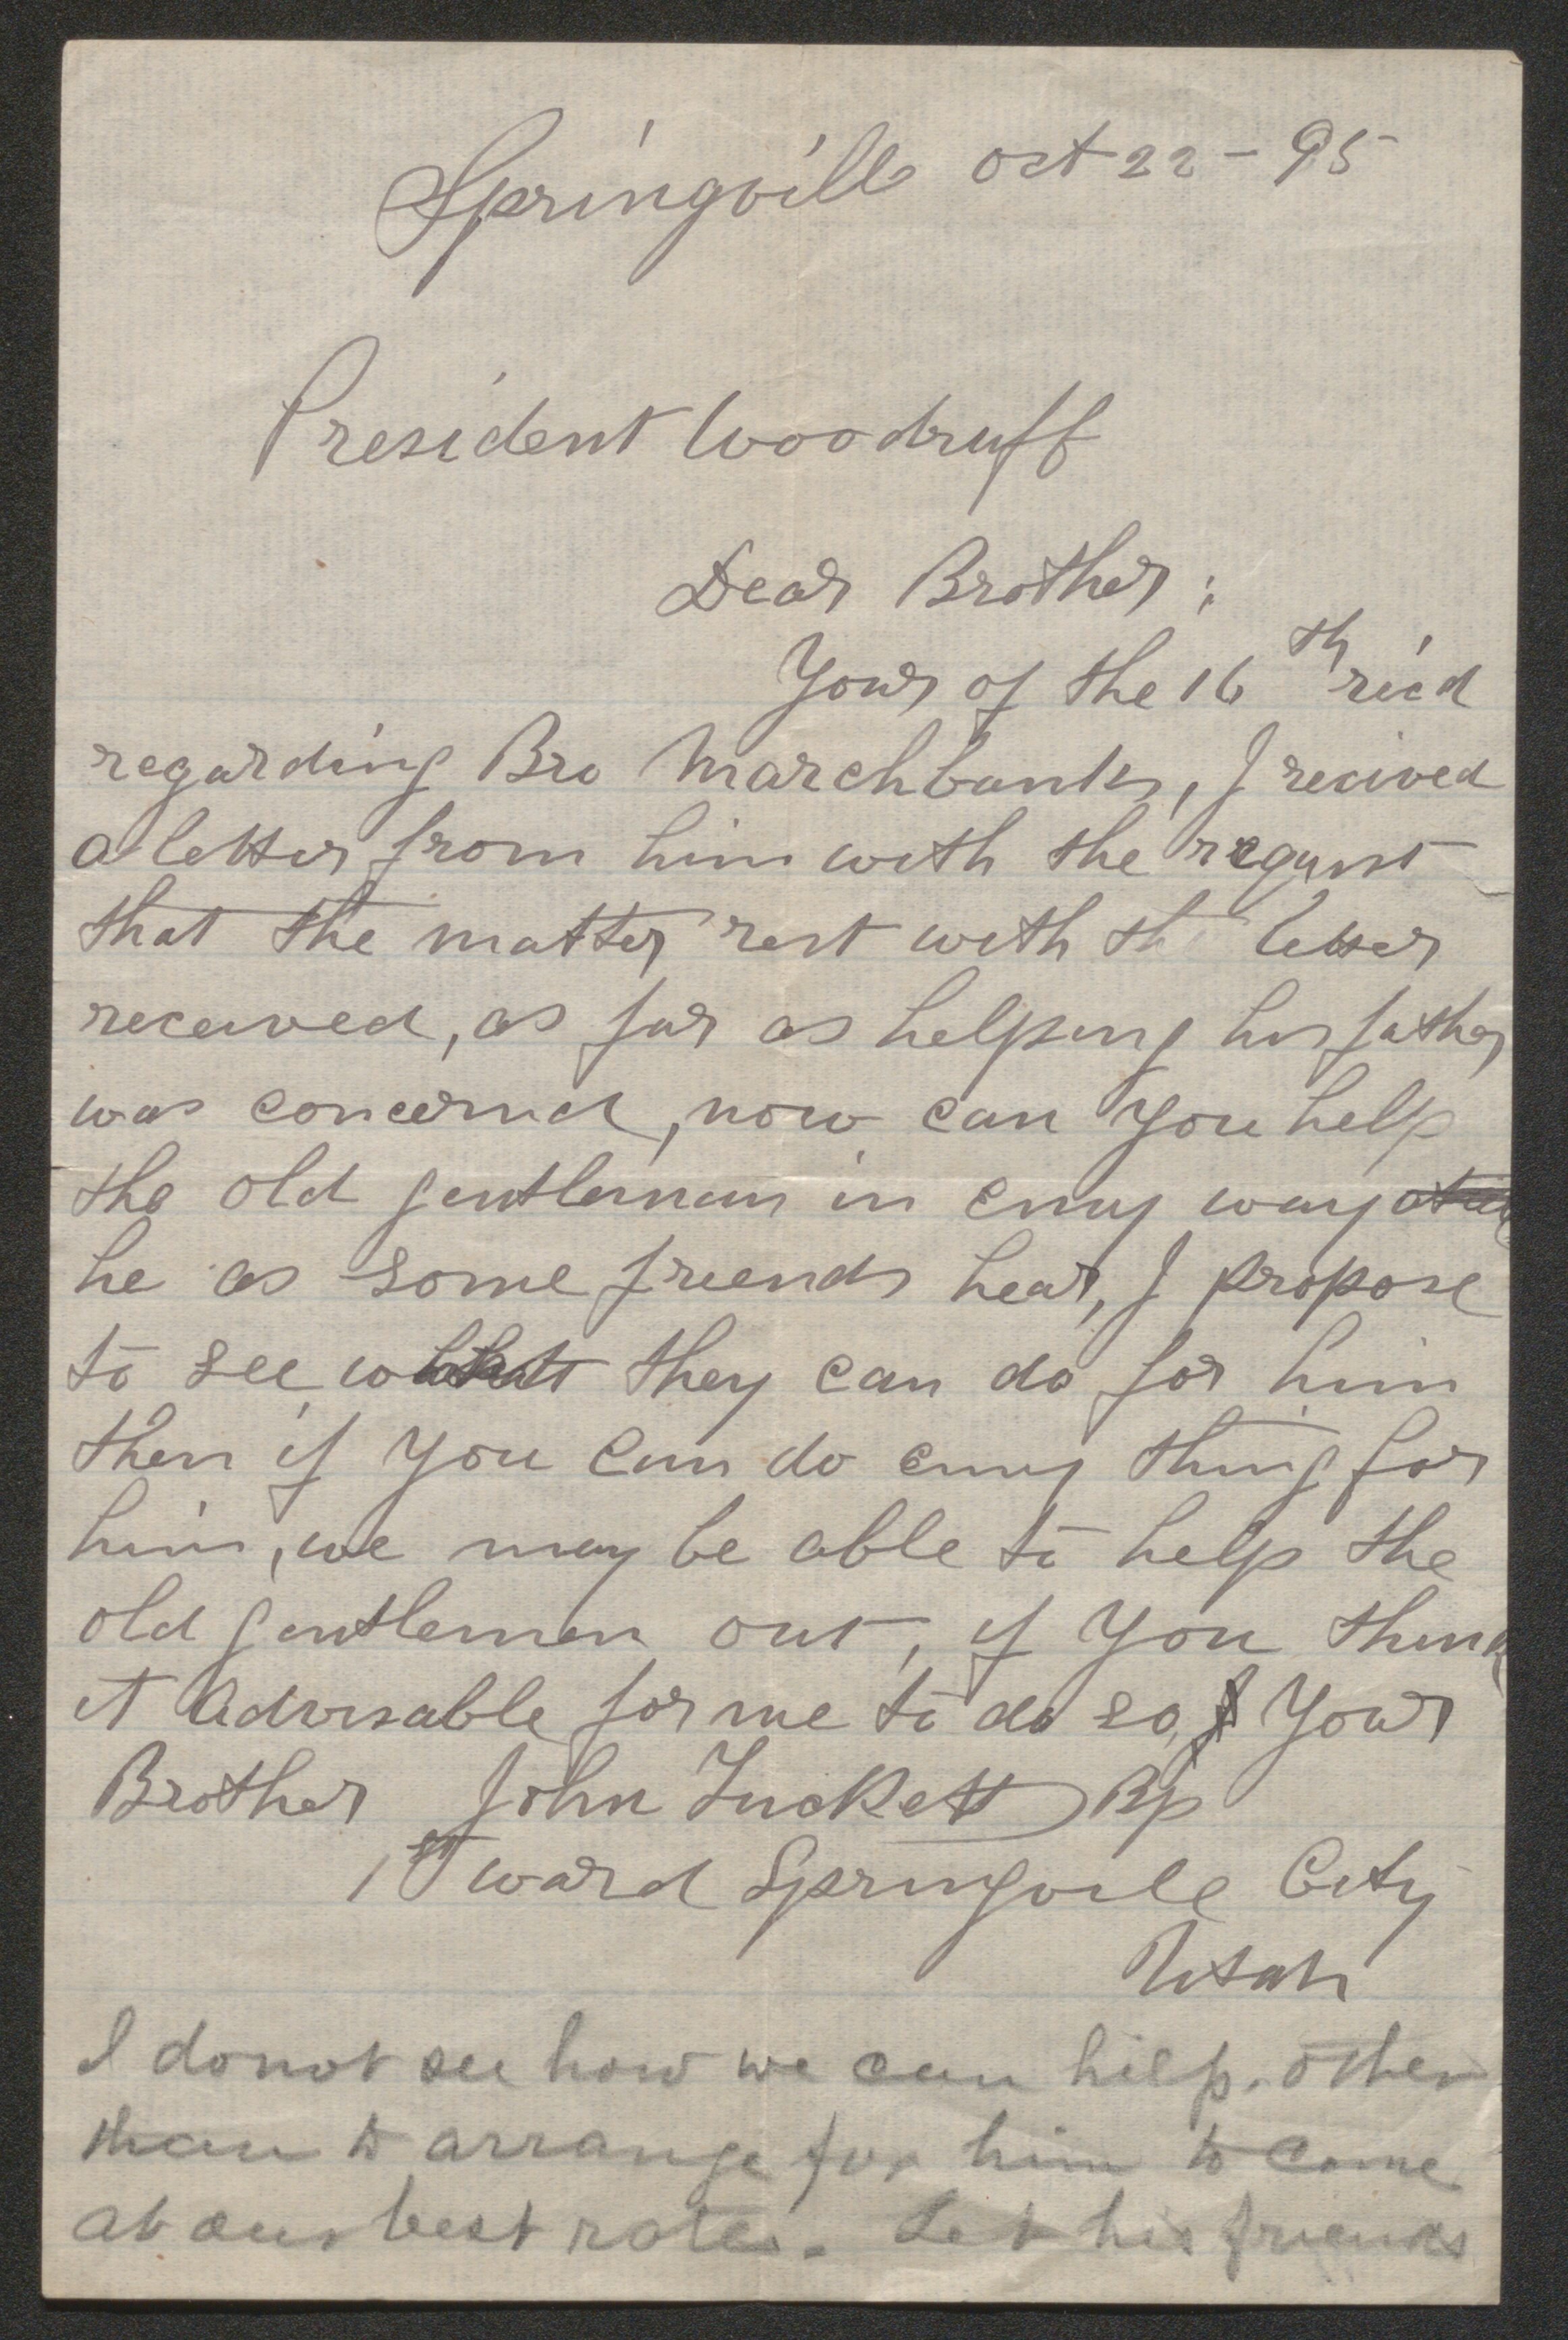 Springville Oct 22 - 95
President Woodruff
Dear Brother;
Yours of the 16th rec'd
regarding Bro Marchbanks, I recived
a letter from him with the request
that the matter rest with th letter
received, as far as helping his father
was concernd, now can you help
the old gentleman in enny way
he as some friends hear, I propose
to see what they can do for him
then if you can do enny thing for
him, we may be able to help the
old gentlemen out, if you think
it advisable for me to do so, Your
Brother John Tuckett Bp
1st ward Springvile City
Utah
I do not see how we can help. other
than to arrange for him to come
at our best rates. Let his friends